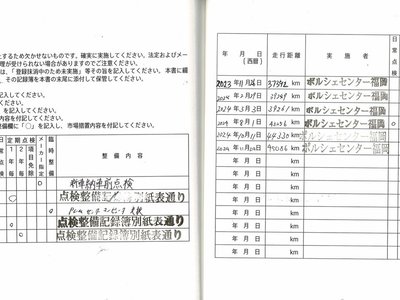 するため欠かせないものです。確実に実施してください。法定およびメー
理が受けられない場合がありますのでご注意ください。
は、「登録抹消中のため未実施」等その旨を記入してください。本書に綴
、その記録簿を本書の末尾に添付して保管してください。
を記入してください。
入してください。
。
を記入してください。
付を記入してください。
備欄に「○」を記入し、市場措置内容を付記してください。
日常点検
定期点検
1年毎
2年毎
項目免除
メーカー指定
臨時整備
整備内容
新車納車前点検
点検整備記録簿別紙表通り
点検整備記録簿別紙表通り
点検整備記録簿別紙表通り
年・月・日
(西暦)
走行距離
実施者
日常点検
2023年11月 日 km ポルシェセンター福岡
2024年2月29日 km ポルシェセンター福岡
2024年3月3日 km ポルシェセンター福岡
2024年9月1日 km ポルシェセンター福岡 ○
2024年10月11日 44330 km ポルシェセンター福岡
2024年11月 日 km ポルシェセンター福岡
年 月 日 km
年 月 日 km
年 月 日 km
年 月 日 km
年 月 日 km
年 月 日 km
年 月 日 km